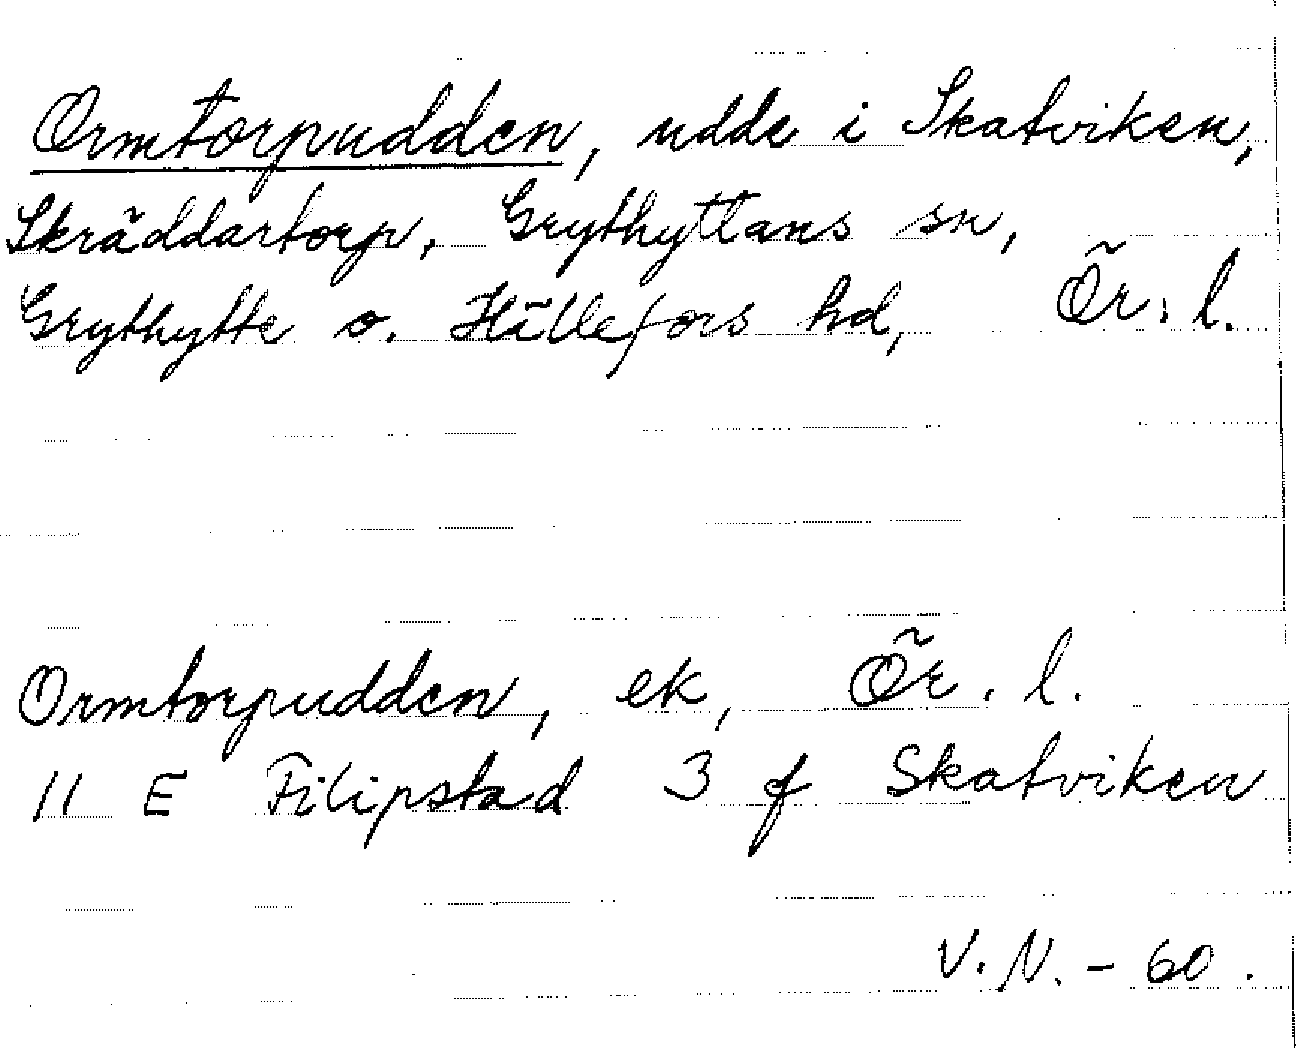 Ormtorpudden, udde i Skatviken,
Skräddartorp, Grythyttans sn,
Grythytte o. Hällefors hd, Ör. l.
Ormtorpudden, ek, Ör. l.
11 E Filipstad 3 f Skatviken
V. N. - 60.